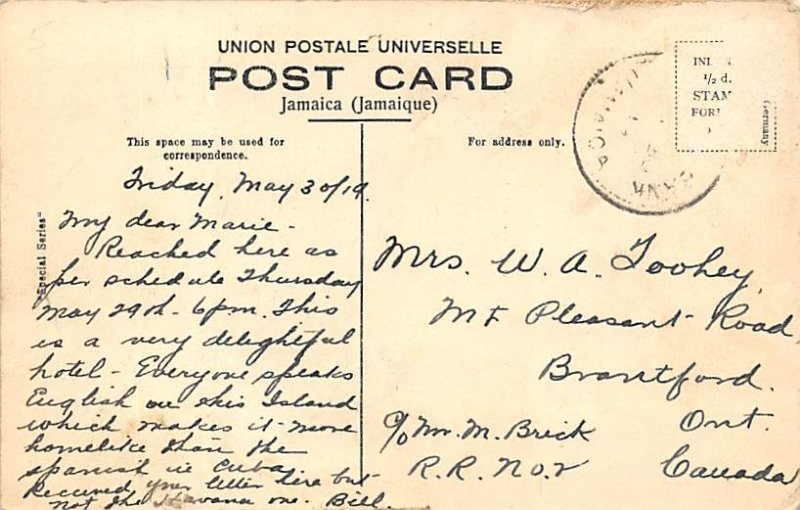 UNION POSTALE UNIVERSELLE
POST CARD
Jamaica (Jamaique)
This space may be used for
correspondence.
For address only.
½ d.
Germany
"Special Series"
Friday, May 30/19.
My dear Marie -
Reached here as
per schedule Thursday
May 29th - 6pm. This
is a very delightful
hotel - Everyone speaks
English on this Island
which makes it more
homelike than the
spanish in Cuba.
Received your letter here but
not the Havana one. Bill.
Mrs. W. A. Toohey,
Mt Pleasant Road
Brantford.
Ont.
c/o Mr. M. Brick
R.R. No. 2
Canada